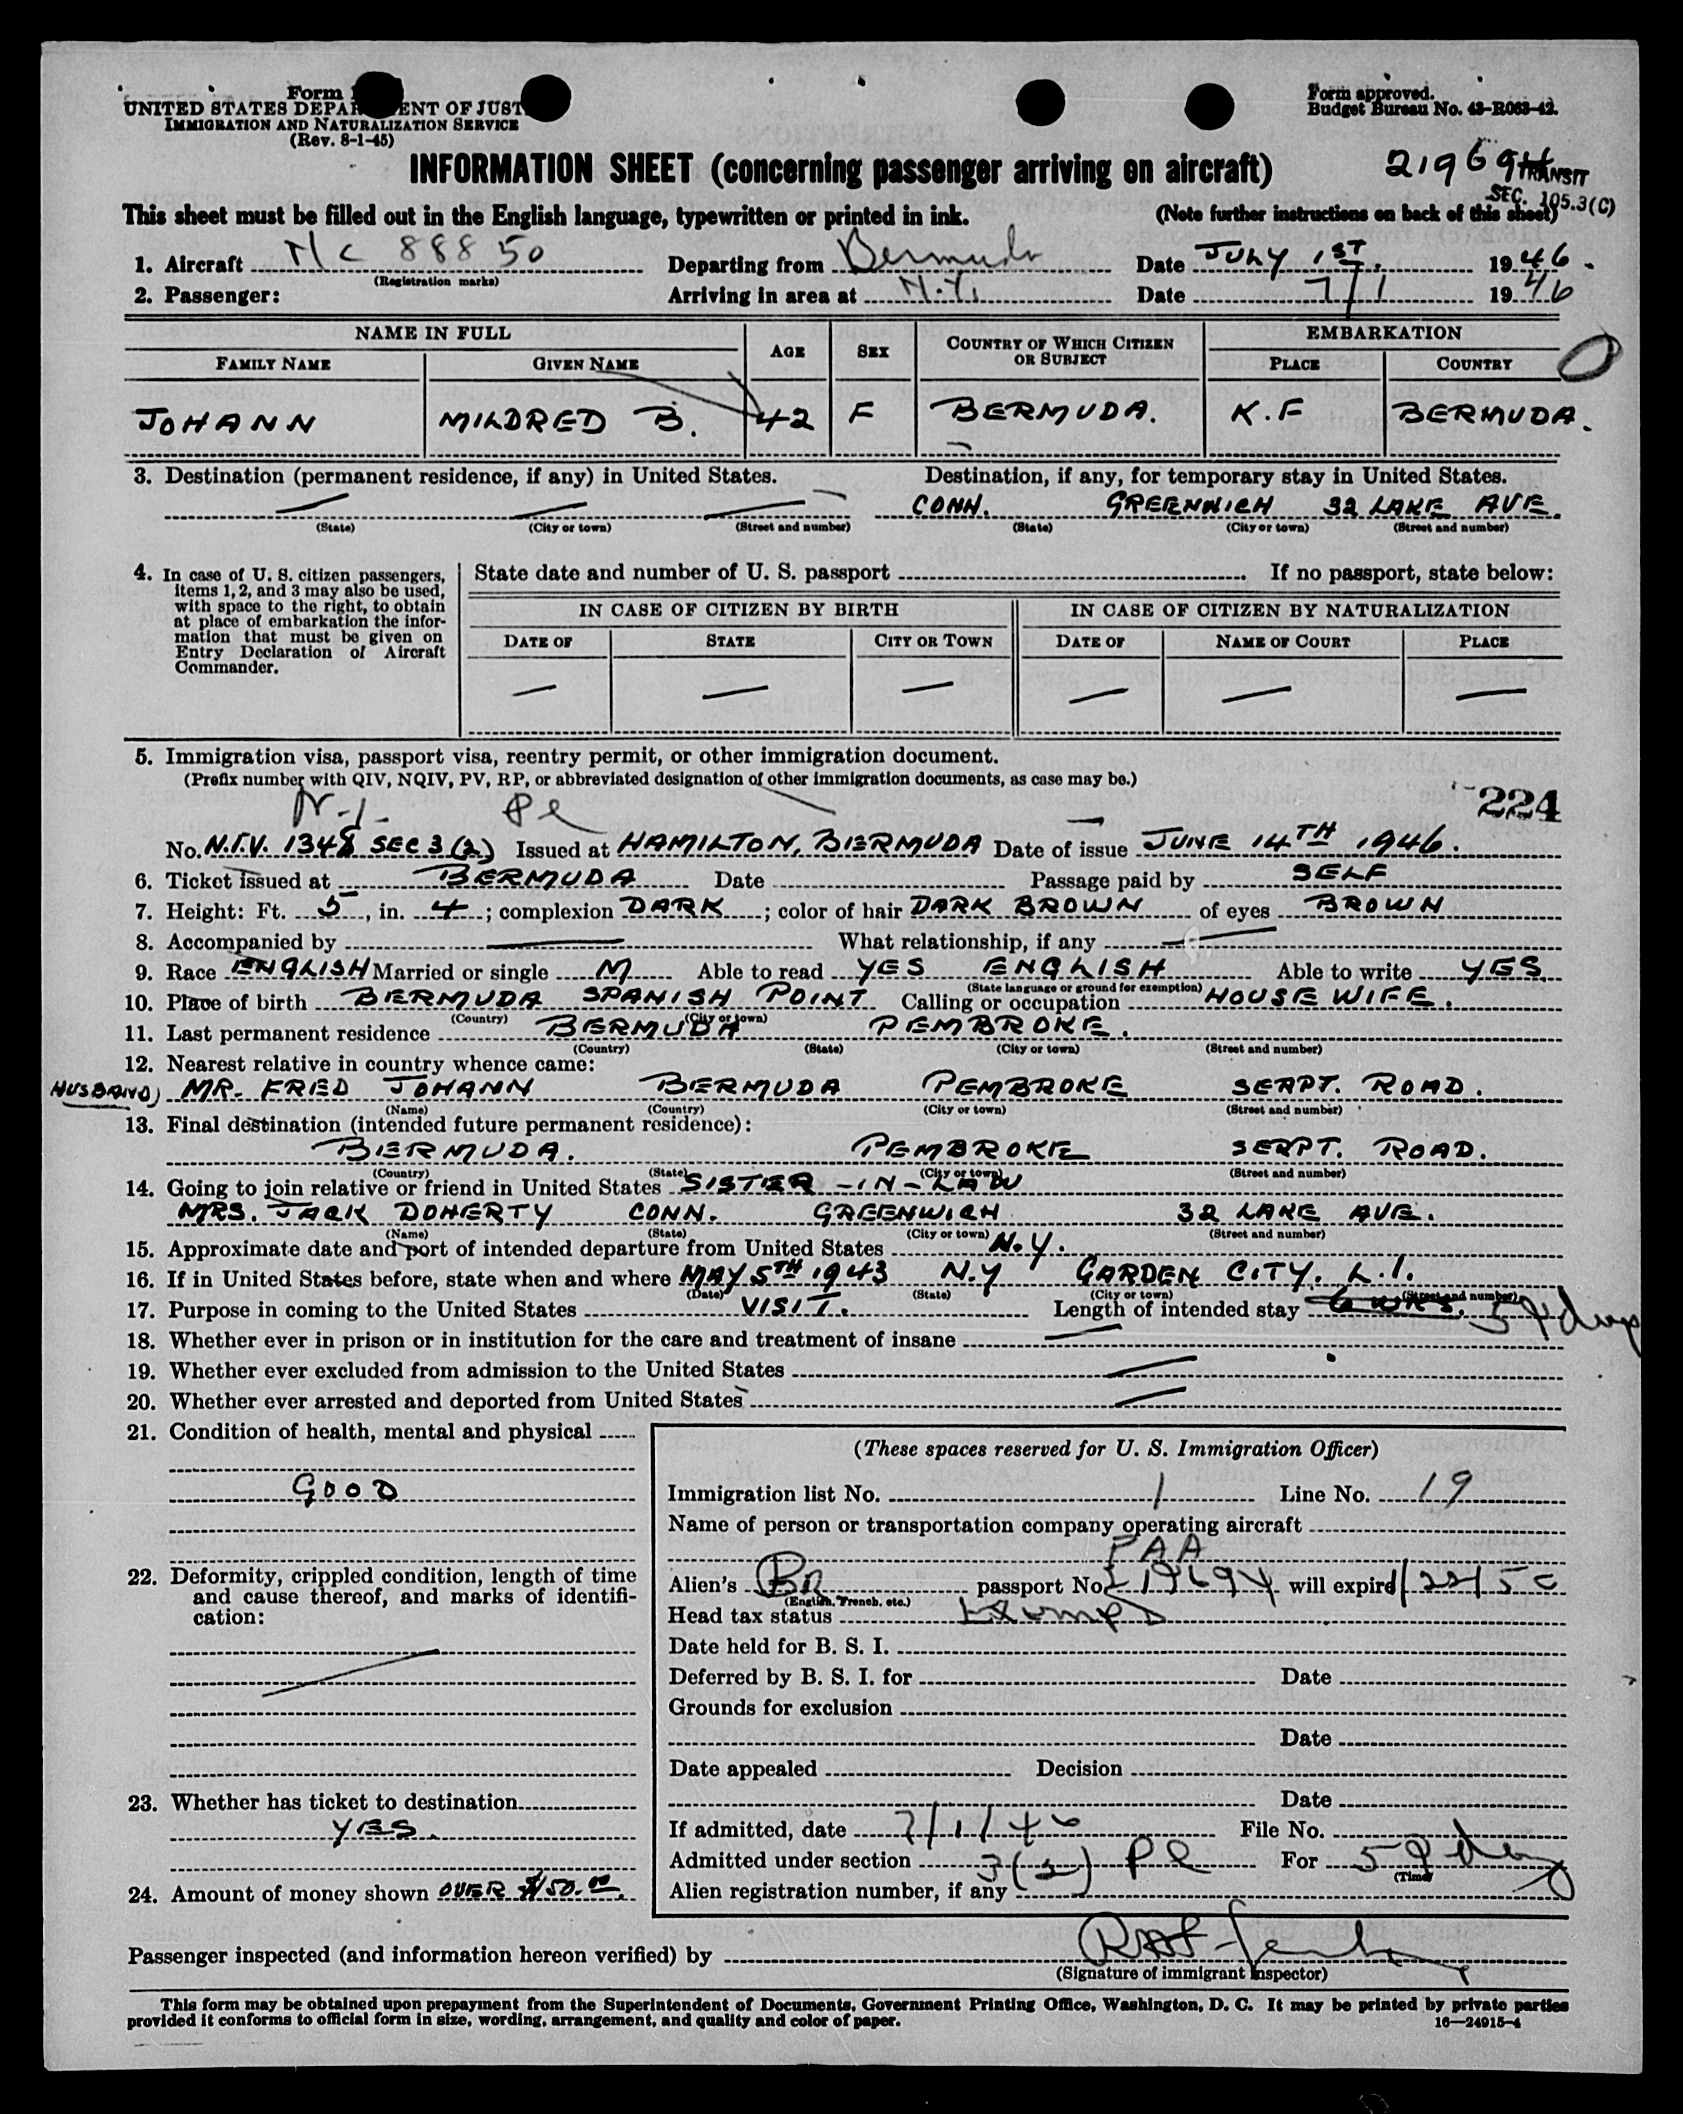 Form
UNITED STATES DEPARTMENT OF JUSTICE
IMMIGRATION AND NATURALIZATION SERVICE
(Rev. 8-1-45)
Form approved.
Budget Bureau No. 43-R063-42.
INFORMATION SHEET (concerning passenger arriving on aircraft)
21969
TRANSIT
SEC. 105.3(C)
This sheet must be filled out in the English language, typewritten or printed in ink. (Note further instructions on back of this sheet)
1. Aircraft NC 88850 Departing from Bermuda Date JULY 1ST. 1946.
(Registration marks)
2. Passenger: Arriving in area at N.Y. Date 7/1 1946
NAME IN FULL AGE SEX COUNTRY OF WHICH CITIZEN OR SUBJECT EMBARKATION
FAMILY NAME GIVEN NAME PLACE COUNTRY
JOHANN MILDRED B. 42 F BERMUDA. K.F BERMUDA.
3. Destination (permanent residence, if any) in United States. Destination, if any, for temporary stay in United States.
— — — CONN. GREENWICH 32 LAKE AVE.
(State) (City or town) (Street and number) (State) (City or town) (Street and number)
4. In case of U. S. citizen passengers, items 1, 2, and 3 may also be used, with space to the right, to obtain at place of embarkation the information that must be given on Entry Declaration of Aircraft Commander.
State date and number of U. S. passport . If no passport, state below:
IN CASE OF CITIZEN BY BIRTH IN CASE OF CITIZEN BY NATURALIZATION
DATE OF STATE CITY OR TOWN DATE OF NAME OF COURT PLACE
— — — — — —
5. Immigration visa, passport visa, reentry permit, or other immigration document.
(Prefix number with QIV, NQIV, PV, RP, or abbreviated designation of other immigration documents, as case may be.)
224
No. N.I.V. 1348 SEC 3(2) Issued at HAMILTON, BERMUDA Date of issue JUNE 14TH 1946.
6. Ticket issued at BERMUDA Date Passage paid by SELF
7. Height: Ft. 5, in. 4; complexion DARK; color of hair DARK BROWN of eyes BROWN
8. Accompanied by — What relationship, if any —
9. Race ENGLISH Married or single M Able to read YES ENGLISH Able to write YES.
(State language or ground for exemption)
10. Place of birth BERMUDA SPANISH POINT Calling or occupation HOUSE WIFE.
(Country) (City or town)
11. Last permanent residence BERMUDA PEMBROKE.
(Country) (State) (City or town) (Street and number)
12. Nearest relative in country whence came:
HUSBAND) MR. FRED JOHANN BERMUDA PEMBROKE SERPT. ROAD.
(Name) (Country) (City or town) (Street and number)
13. Final destination (intended future permanent residence):
BERMUDA. PEMBROKE SERPT. ROAD.
(Country) (State) (City or town) (Street and number)
14. Going to join relative or friend in United States SISTER-IN-LAW
MRS. JACK DOHERTY CONN. GREENWICH 32 LAKE AVE.
(Name) (State) (City or town) (Street and number)
15. Approximate date and port of intended departure from United States N.Y.
16. If in United States before, state when and where MAY 5TH 1943 N.Y GARDEN CITY. L.I.
(Date) (State) (City or town) (Street and number)
17. Purpose in coming to the United States VISIT. Length of intended stay 6 WKS. 59 days
18. Whether ever in prison or in institution for the care and treatment of insane —
19. Whether ever excluded from admission to the United States —
20. Whether ever arrested and deported from United States —
21. Condition of health, mental and physical
GOOD
22. Deformity, crippled condition, length of time and cause thereof, and marks of identification:
—
23. Whether has ticket to destination
YES.
24. Amount of money shown OVER $50.00.
(These spaces reserved for U. S. Immigration Officer)
Immigration list No. 1 Line No. 19
Name of person or transportation company operating aircraft
PAA
Alien's Br passport No. 19694 will expire
(English, French, etc.)
Head tax status Exempt
Date held for B. S. I.
Deferred by B. S. I. for Date
Grounds for exclusion
Date
Date appealed Decision
Date
If admitted, date 7/1/46 File No.
Admitted under section 3(2) Pl For 59 days
(Time)
Alien registration number, if any
Passenger inspected (and information hereon verified) by
(Signature of immigrant inspector)
This form may be obtained upon prepayment from the Superintendent of Documents, Government Printing Office, Washington, D. C. It may be printed by private parties
provided it conforms to official form in size, wording, arrangement, and quality and color of paper. 16—24915-4